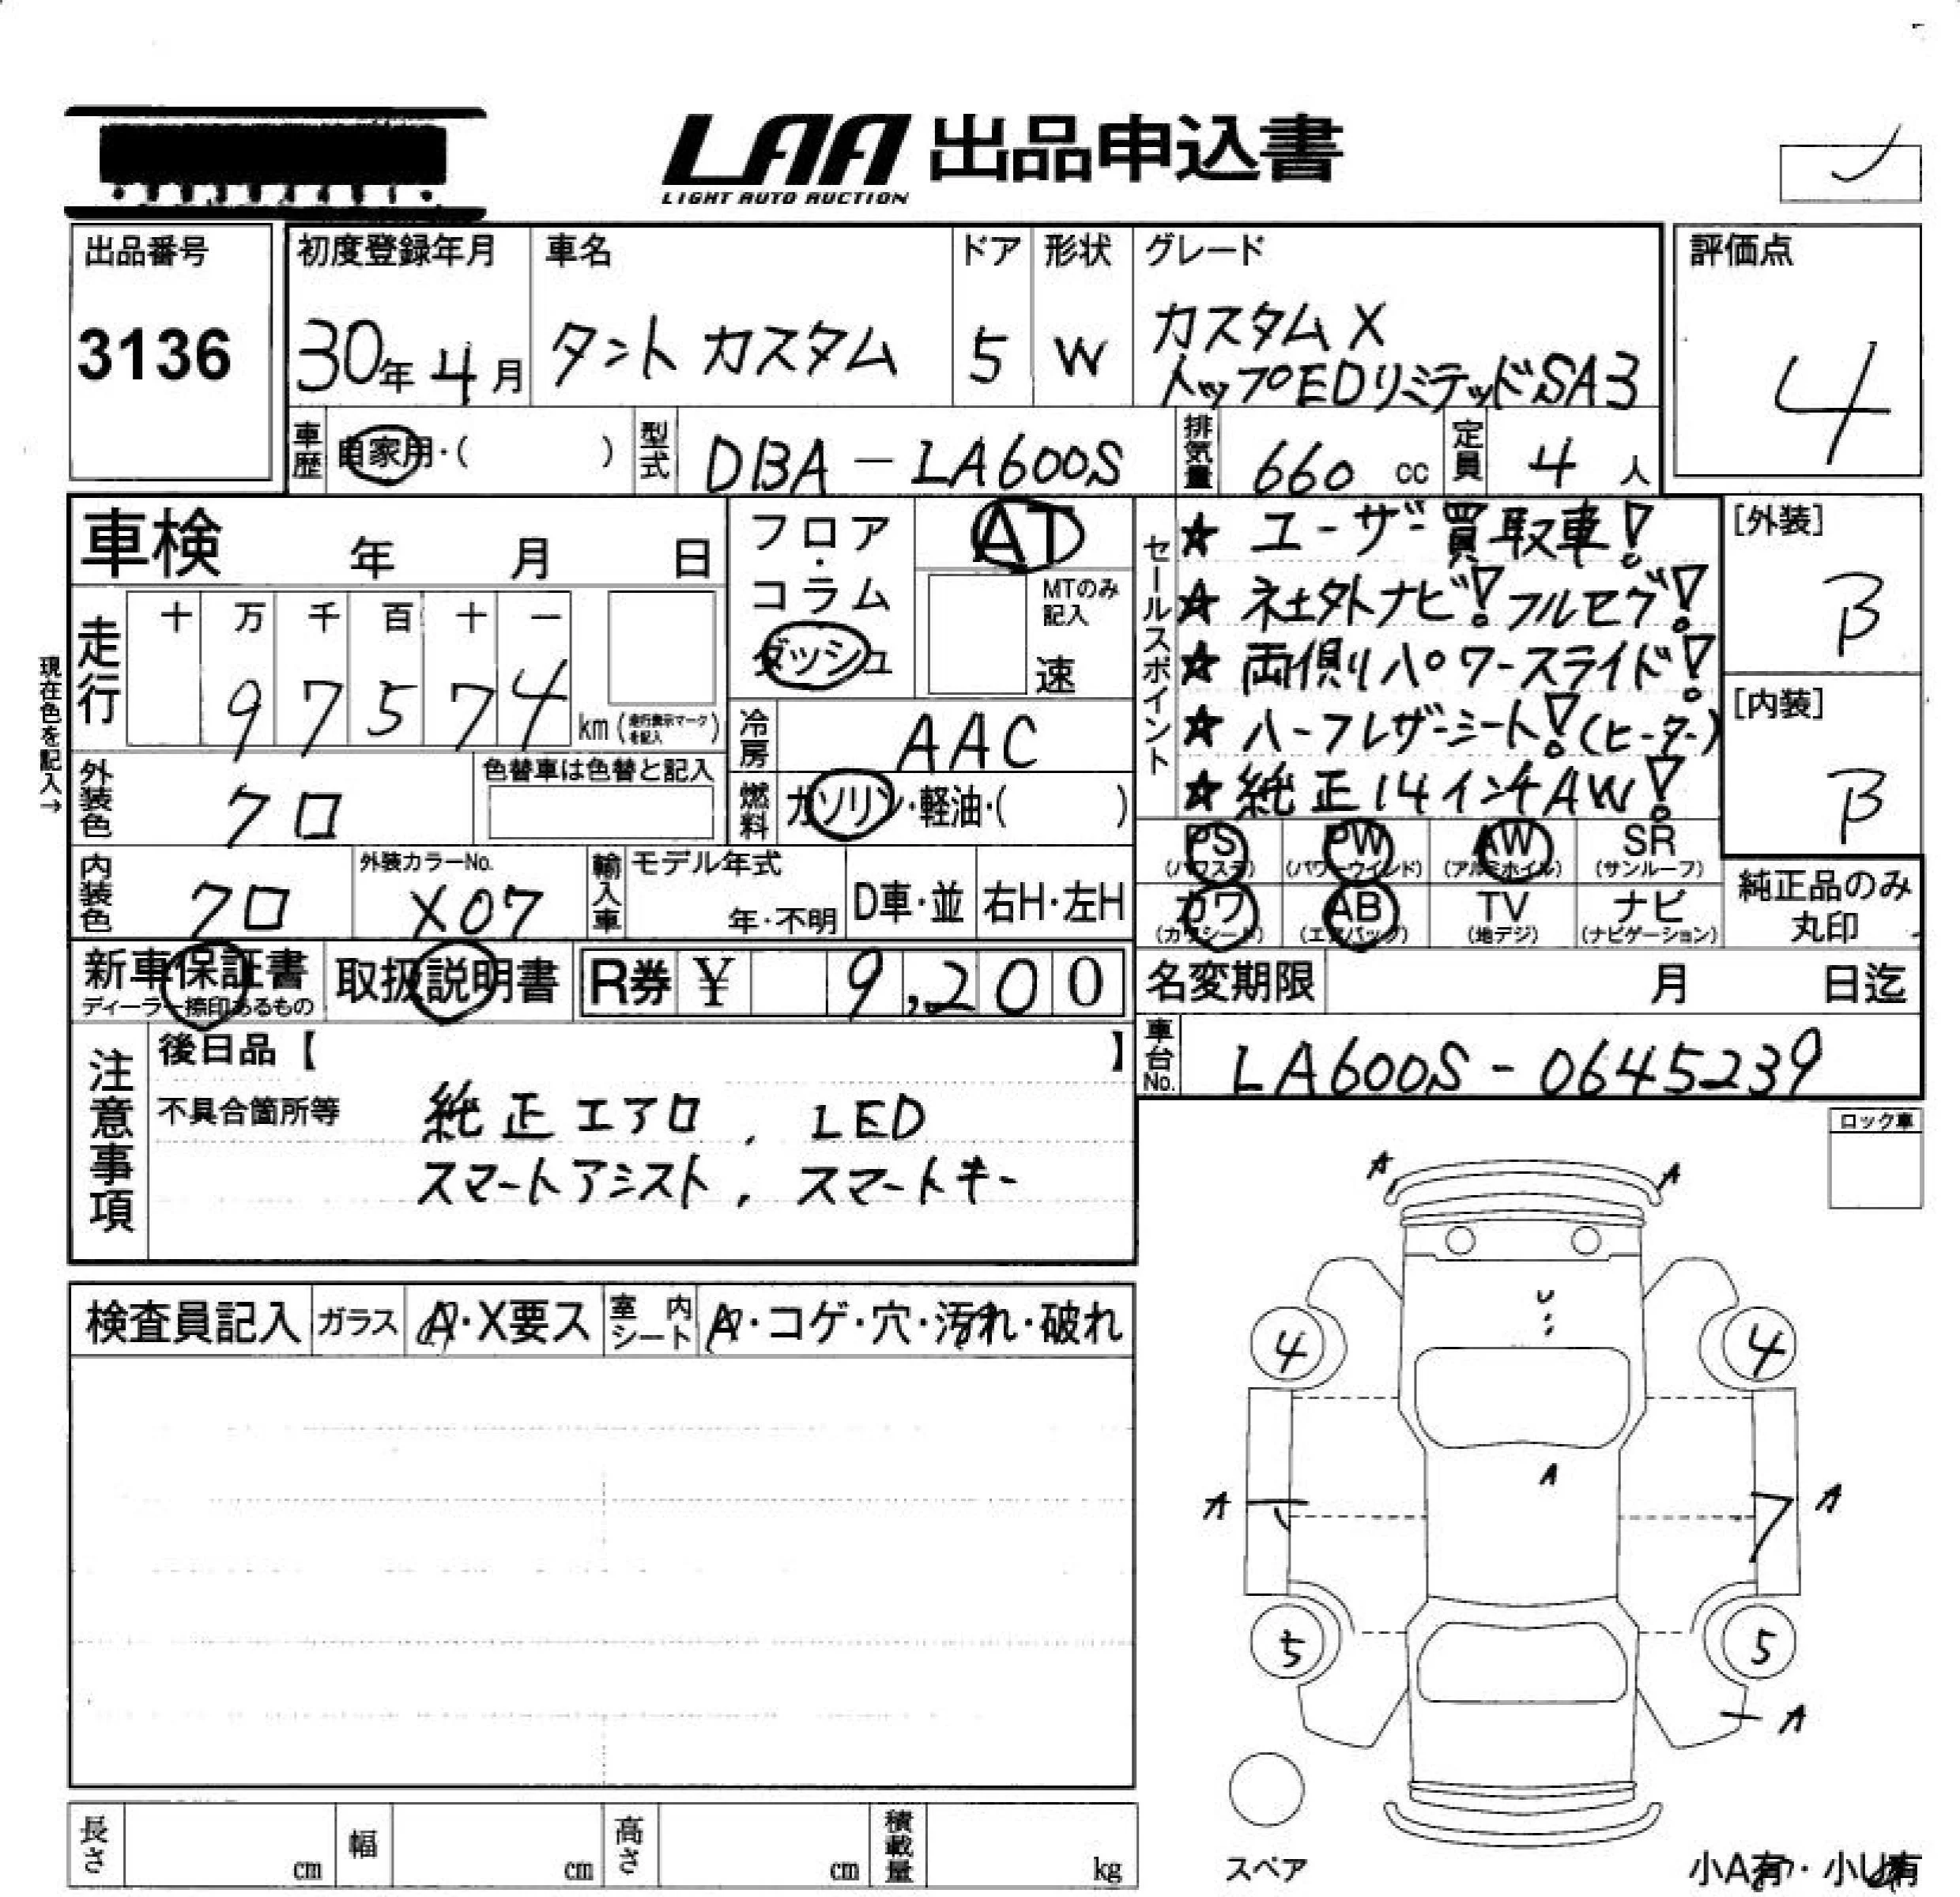 LAA 出品申込書
LIGHT AUTO AUCTION
出品番号
3136
初度登録年月
30年 4月
車名
タント カスタム
ドア
5
形状
W
グレード
カスタム X
トップEDリミテッドSA3
評価点
4
車歴 自家用・( )
型式 DBA - LA600S
排気量 660 cc
定員 4 人
車検 年 月 日
フロア・コラム
ダッシュ
AT
MTのみ記入
速
走行
十 万 千 百 十 一
9 7 5 7 4 km (走行表示マークを記入)
現在色を記入→
冷房 AAC
外装色 クロ
色替車は色替と記入
燃料 ガソリン・軽油・( )
内装色 クロ
外装カラーNo.
X07
輸入車
モデル年式
年・不明
D車・並
右H・左H
セールスポイント
☆ ユーザー買取車!
☆ 社外ナビ!フルセグ!
☆ 両側パワースライド!
☆ ハーフレザーシート!(ヒーター)
☆ 純正14インチAW!
[外装]
B
[内装]
B
PS (パワステ)
PW (パワーウインド)
AW (アルミホイル)
SR (サンルーフ)
カワ (カワシート)
AB (エアバッグ)
TV (地デジ)
ナビ (ナビゲーション)
純正品のみ
丸印
新車保証書
ディーラー捺印あるもの
取扱説明書
R券 ¥ 9,200
名変期限 月 日迄
車台No. LA600S - 0645239
注意事項
後日品【 】
不具合箇所等
純正エアロ , LED
スマートアシスト , スマートキー
ロック車
検査員記入
ガラス A・X要ス
室内シート A・コゲ・穴・汚れ・破れ
A A
U
4 4
A
A A
5 5
A
スペア
小A有・小U有
長さ cm
幅 cm
高さ cm
積載量 kg